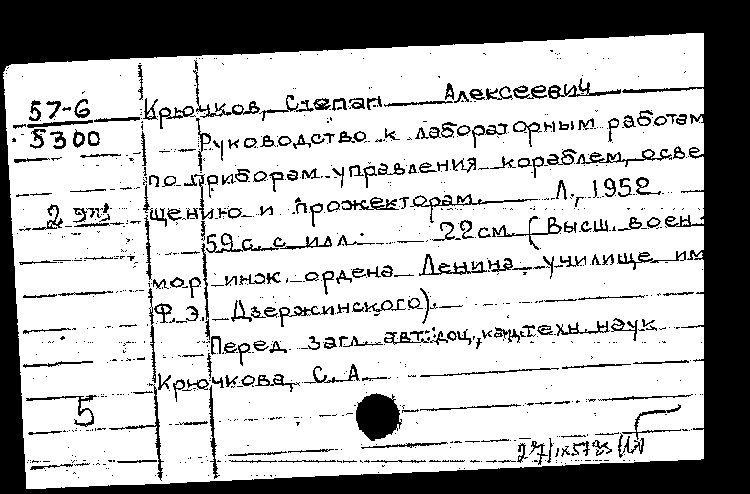 57-6 Крючков, Степан Алексеевич
5300 Руководство к лабораторным работам
по приборам управления кораблем, осве
2 экз щению и прожекторам. Л., 1952.
59 с. с илл. 22 см (Высш. воен.
мор. инж. ордена Ленина училище им
Ф. Э. Дзержинского).
Перед загл. авт.: доц., канд. техн. наук
Крючкова, С. А.
5